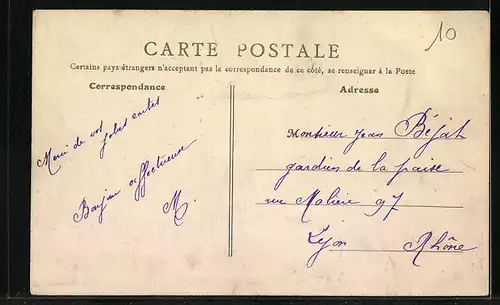 10
CARTE POSTALE
Certains pays étrangers n'acceptant pas la correspondance de ce côté, se renseigner à la Poste
Correspondance
Merci de vos
jolies cartes
Bonjour affectueux
M.
Adresse
Monsieur Jean Béjat
gardien de la paix
rue Molière 97
Lyon Rhône